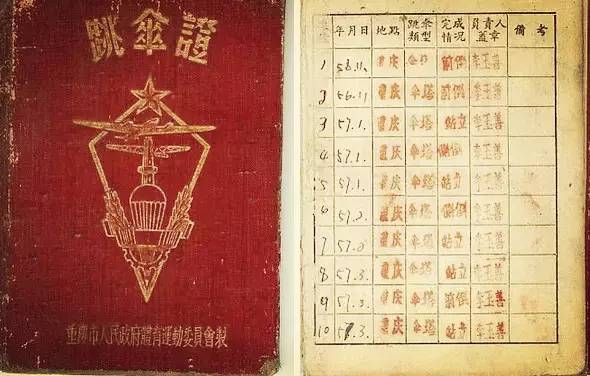 跳傘證
重慶市人民政府體育運動委員會製
年月日 地點 跳傘類型 完成情况 負責人蓋章 備考
1 56.11. 重庆 伞 前倒 李玉善
2 56.11 重庆 伞塔 前倒 李玉善
3 57.1. 重庆 伞塔 站立 李玉善
4 57.1. 重庆 伞塔 侧倒 李玉善
5 57.1. 重庆 伞塔 站立 李玉善
6 57.2. 重庆 伞塔 侧倒 李玉善
7 57.2 重庆 伞塔 站立 李玉善
8 57.3. 重庆 伞塔 站立 李玉善
9 57.3. 重庆 伞塔 前倒 李玉善
10 57.3. 重庆 伞塔 站立 李玉善